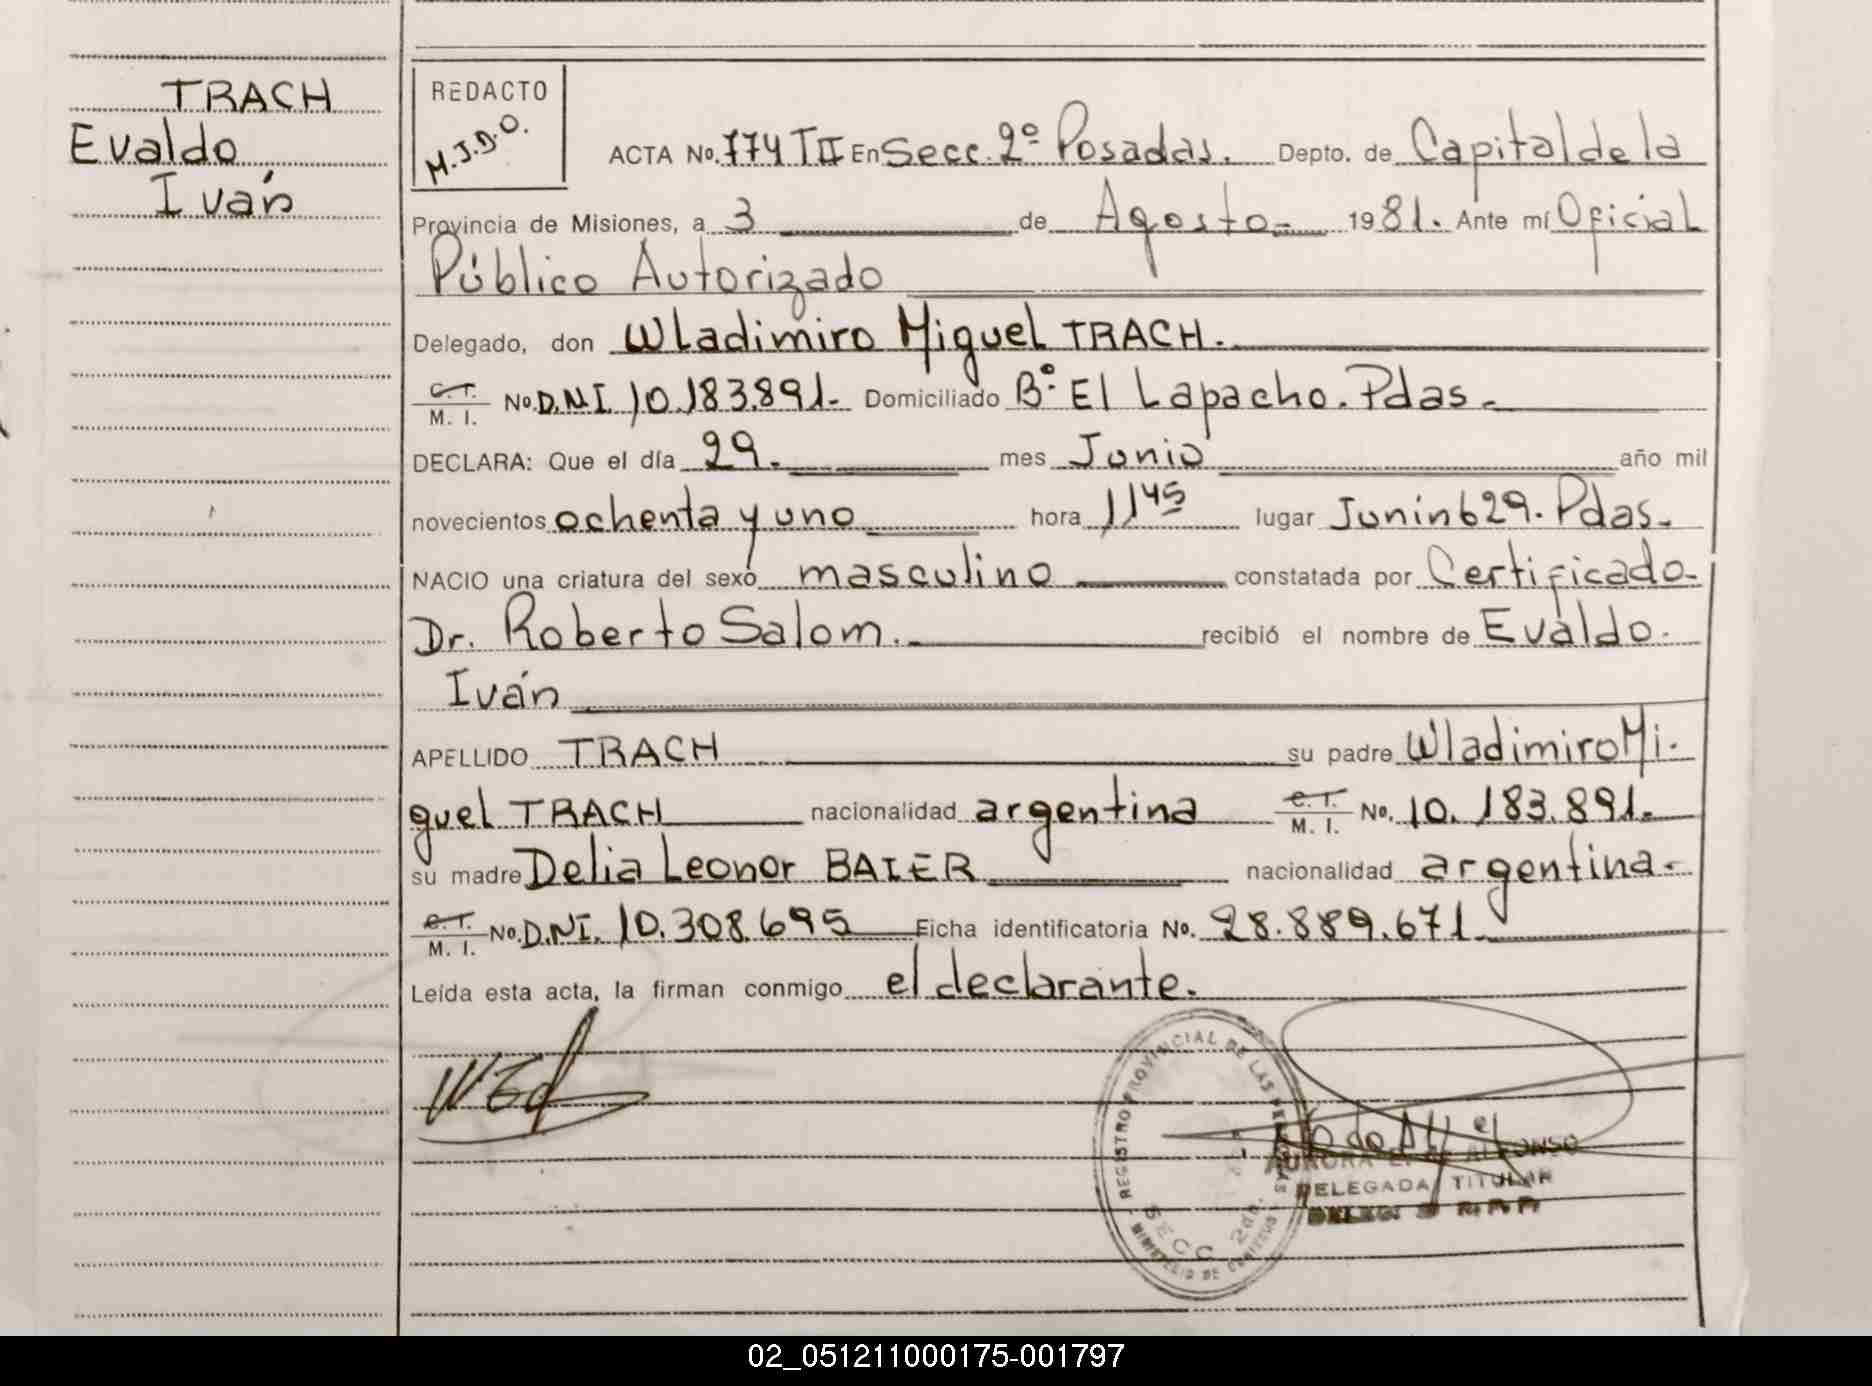 TRACH
Evaldo
Iván
REDACTO
M.J.D.O.
ACTA No. 774 TII En Secc. 2º Posadas. Depto. de Capital de la
Provincia de Misiones, a 3 de Agosto 1981. Ante mí Oficial
Público Autorizado
Delegado, don Wladimiro Miguel TRACH.
C.T. M. I. No. D.N.I. 10.183.891. Domiciliado Bº El Lapacho. Pdas.
DECLARA: Que el día 29. mes Junio año mil
novecientos ochenta y uno hora 11 45 lugar Junin 629. Pdas.
NACIO una criatura del sexo masculino constatada por Certificado
Dr. Roberto Salom. recibió el nombre de Evaldo
Iván
APELLIDO TRACH su padre Wladimiro Mi-
guel TRACH nacionalidad argentina C.T. M. I. No. 10.183.891.
su madre Delia Leonor BAIER nacionalidad argentina.
C.T. M. I. No. D.N.I. 10.308.695 Ficha identificatoria No. 28.889.671
Leída esta acta, la firman conmigo el declarante.
REGISTRO PROVINCIAL DE LAS PERSONAS
SECC 2da.
MINISTERIO DE
AURORA ALFONSO
DELEGADA TITULAR
02_051211000175-001797